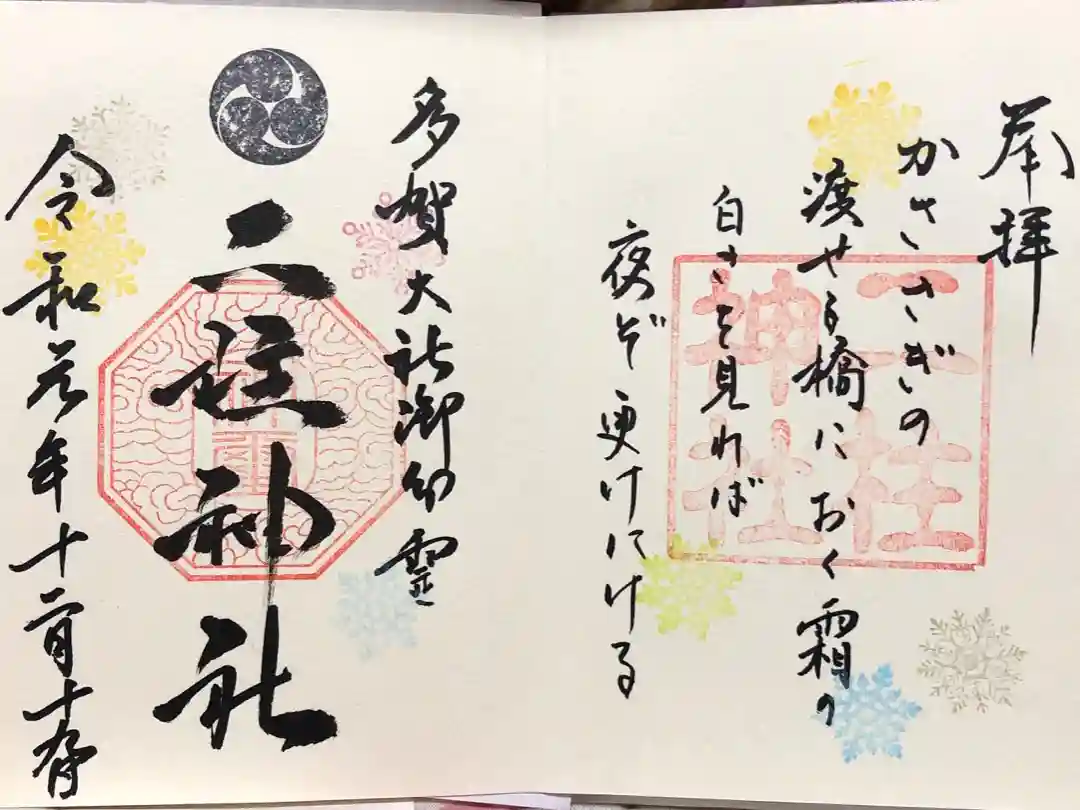 奉拝
かささぎの
渡せる橋におく霜の
白きを見れば
夜ぞ更けにける
二柱
神社
多賀大社御分霊
二柱神社
令和元年十二月十九日